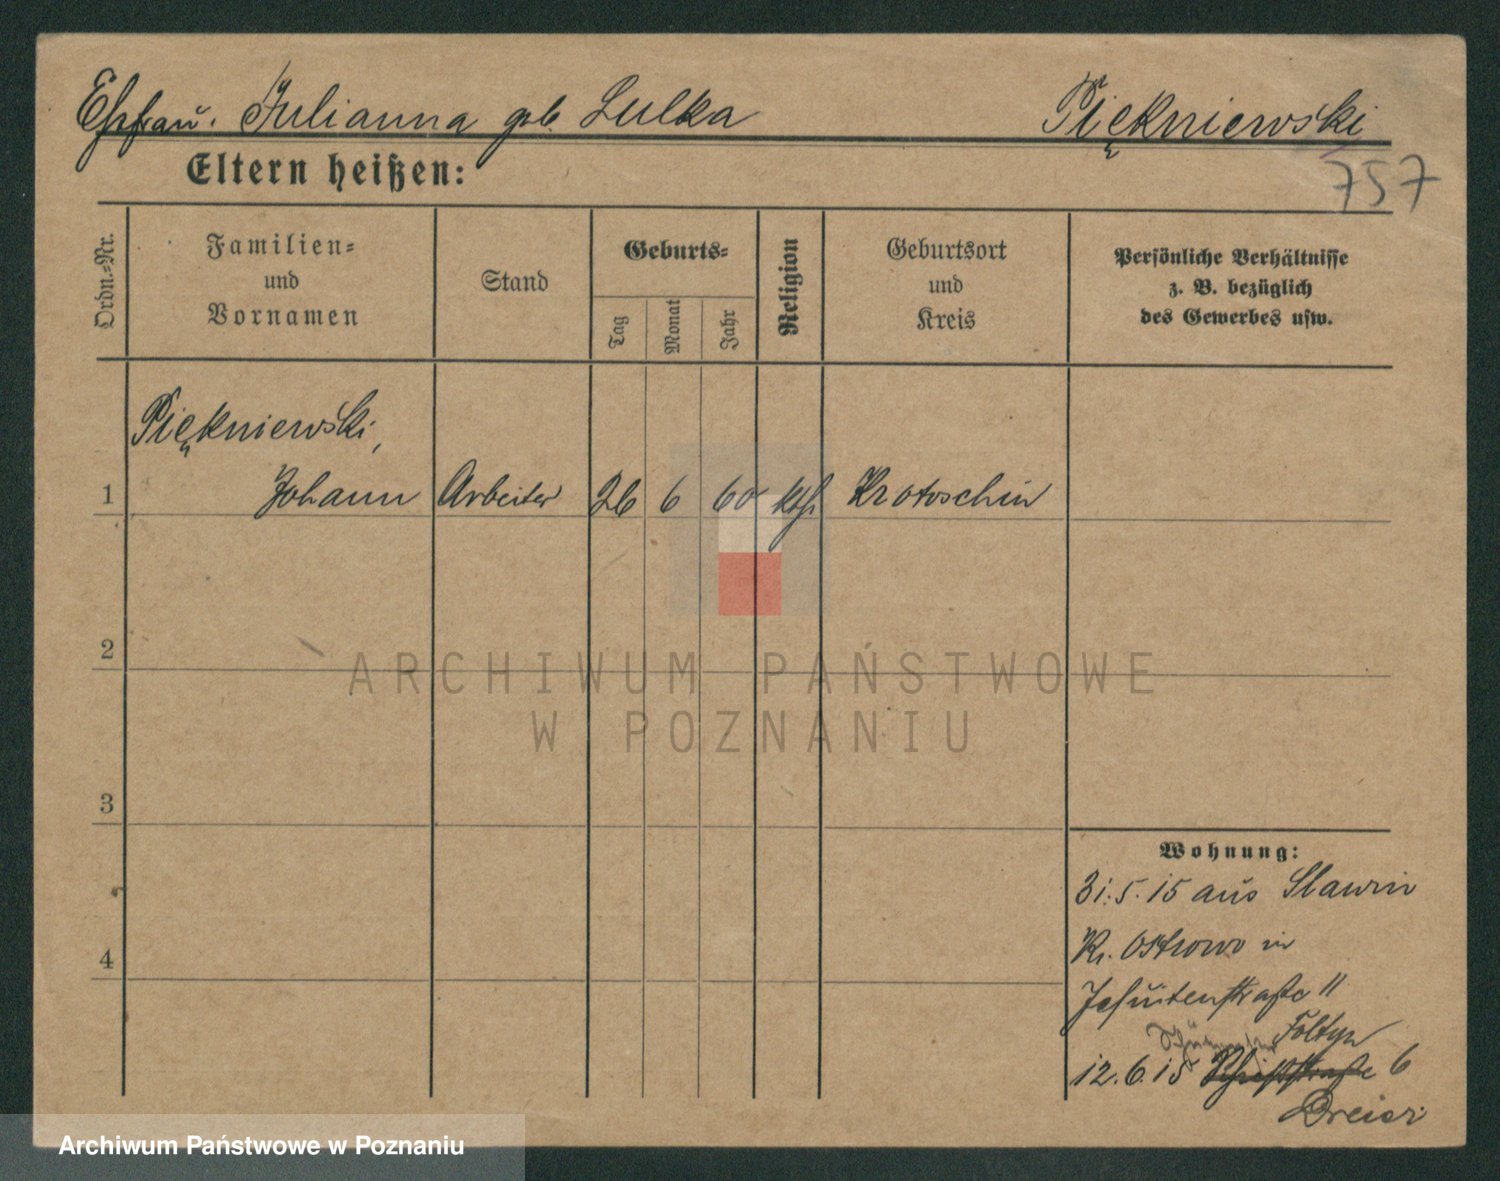 Ehefrau. Julianna geb. Lulka Piękniewski
757
Eltern heißen:
Ordn.=Nr.
Familien=
und
Vornamen
Stand
Geburts=
Tag
Monat
Jahr
Religion
Geburtsort
und
Kreis
Persönliche Verhältnisse
z. B. bezüglich
des Gewerbes usw.
Piękniewski,
1 Johann Arbeiter 26 6 60 kth Krotoschin
2
3
4
Wohnung:
31.5.15 aus Slawin
Kr. Ostrowo in
Jesuitenstraße 11
Foltyn
12.6.15 6
ARCHIWUM PAŃSTWOWE
W POZNANIU
Archiwum Państwowe w Poznaniu